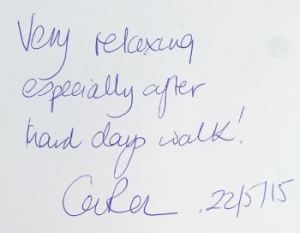 Very relaxing
especially after
hard days walk!
22/5/15